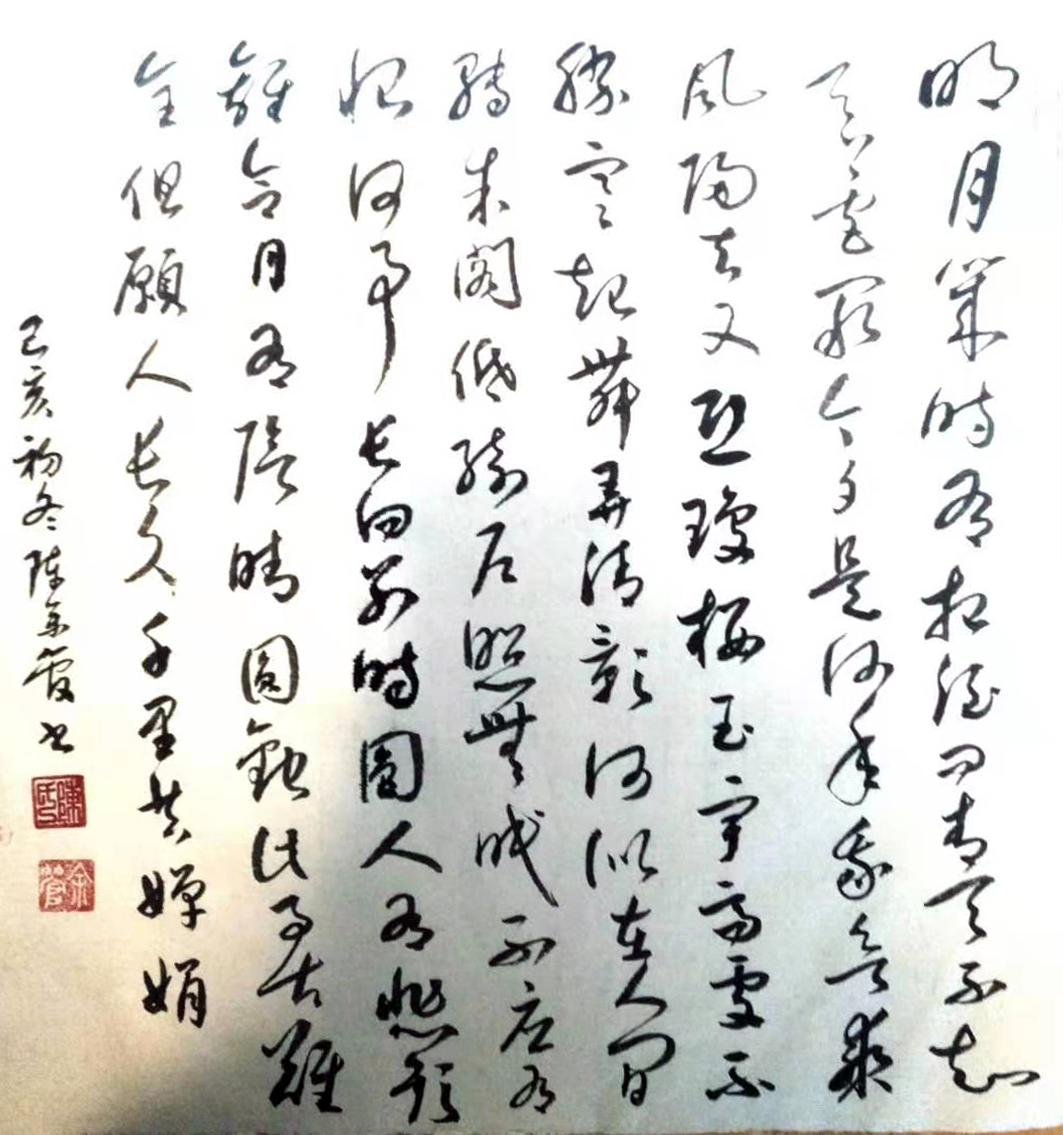 明月幾時有把酒问青天不知
天上宫阙今夕是何年我欲乘
风歸去又恐瓊楼玉宇高處不
勝寒起舞弄清影何似在人间
轉朱阁低绮户照無眠不应有
恨何事长向别时圆人有悲歡
離合月有陰晴圆缺此事古難
全但願人长久千里共嬋娟
己亥初冬陈余管书
陳氏
余管